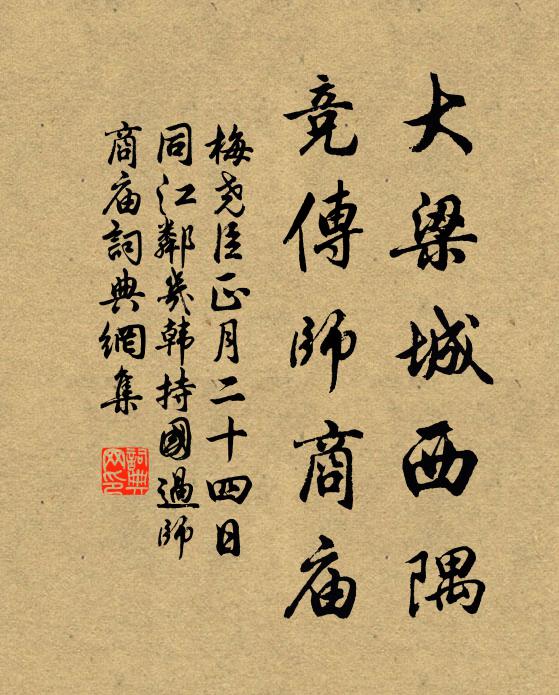 大梁城西隅
竞傳師商庙
梅尧臣正月二十四日
同江鄰幾韩持國過師
商庙詞典網集
詞典网印